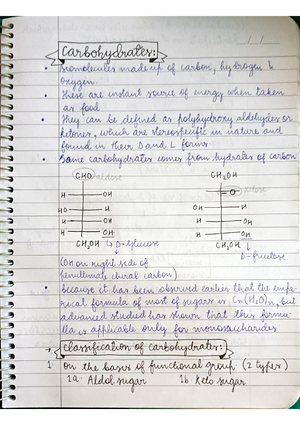 Carbohydrates:
• Biomolecules made up of carbon, hydrogen &
oxygen
• These are instant source of energy when taken
as food
• They can be defined as polyhydroxy aldehydes or
ketones, which are stereospecific in nature and
found in their D and L forms
• Name carbohydrates comes from hydrates of carbon
CHO aldose CH2OH
H OH =O ketose
HO H OH H
H OH H OH
H OH H OH
CH2OH D-glucose CH2OH
D-fructose
(OH on right side of
penultimate chiral carbon)
• because it has been observed earlier that the empe-
rical formula of most of sugars is Cn(H2O)n, but
advanced studied has shown that this formu-
lla is applicable only for monosaccharides
→ Classification of carbohydrates:
1 On the basis of functional group (2 types)
1a. Aldol sugar 1b. Keto sugar